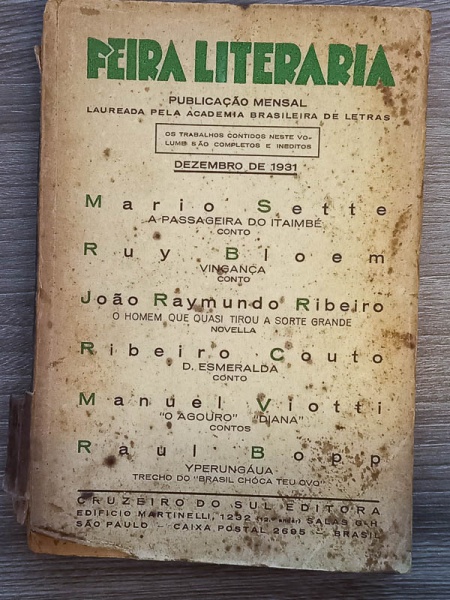 FEIRA LITERARIA
PUBLICAÇÃO MENSAL
LAUREADA PELA ACADEMIA BRASILEIRA DE LETRAS
OS TRABALHOS CONTIDOS NESTE VO-
LUME SÃO COMPLETOS E INEDITOS
DEZEMBRO DE 1931
Mario Sette
A PASSAGEIRA DO ITAIMBÉ
CONTO
Ruy Bloem
VINGANÇA
CONTO
João Raymundo Ribeiro
O HOMEM QUE QUASI TIROU A SORTE GRANDE
NOVELLA
Ribeiro Couto
D. ESMERALDA
CONTO
Manuel Viotti
"O AGOURO" "DIANA"
CONTOS
Raul Bopp
YPERUNGÁUA
TRECHO DO "BRASIL CHÓCA TEU OVO"
CRUZEIRO DO SUL EDITORA
EDIFICIO MARTINELLI, 1232 (12.º andar) SALAS G-H
SÃO PAULO — CAIXA POSTAL 2695 — BRASIL